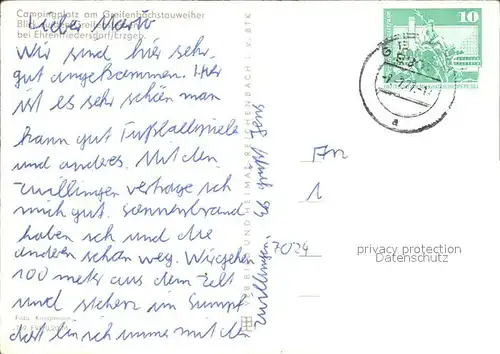 Campingplatz am Greifenbachstauweiher
Lieber Mario
bei Ehrenfriedersdorf/Erzgeb.
Wir sind hier sehr
gut angekommen. Hier
ist es sehr schön man
kann gut Fußballspiele
und anderes. Mit den
zwillingen vertrage ich
mich gut. Sonnenbrand
haben ich und die
anderen schon weg. Wir gehen
100 meter aus dem Zelt
und stehen im Sumpf
dort bin ich imme mit den
zwillingen. Es grüßt Jens
VEB BILD UND HEIMAT REICHENBACH I. V. BTK
An
1
7024
10
a
privacy protection
Datenschutz